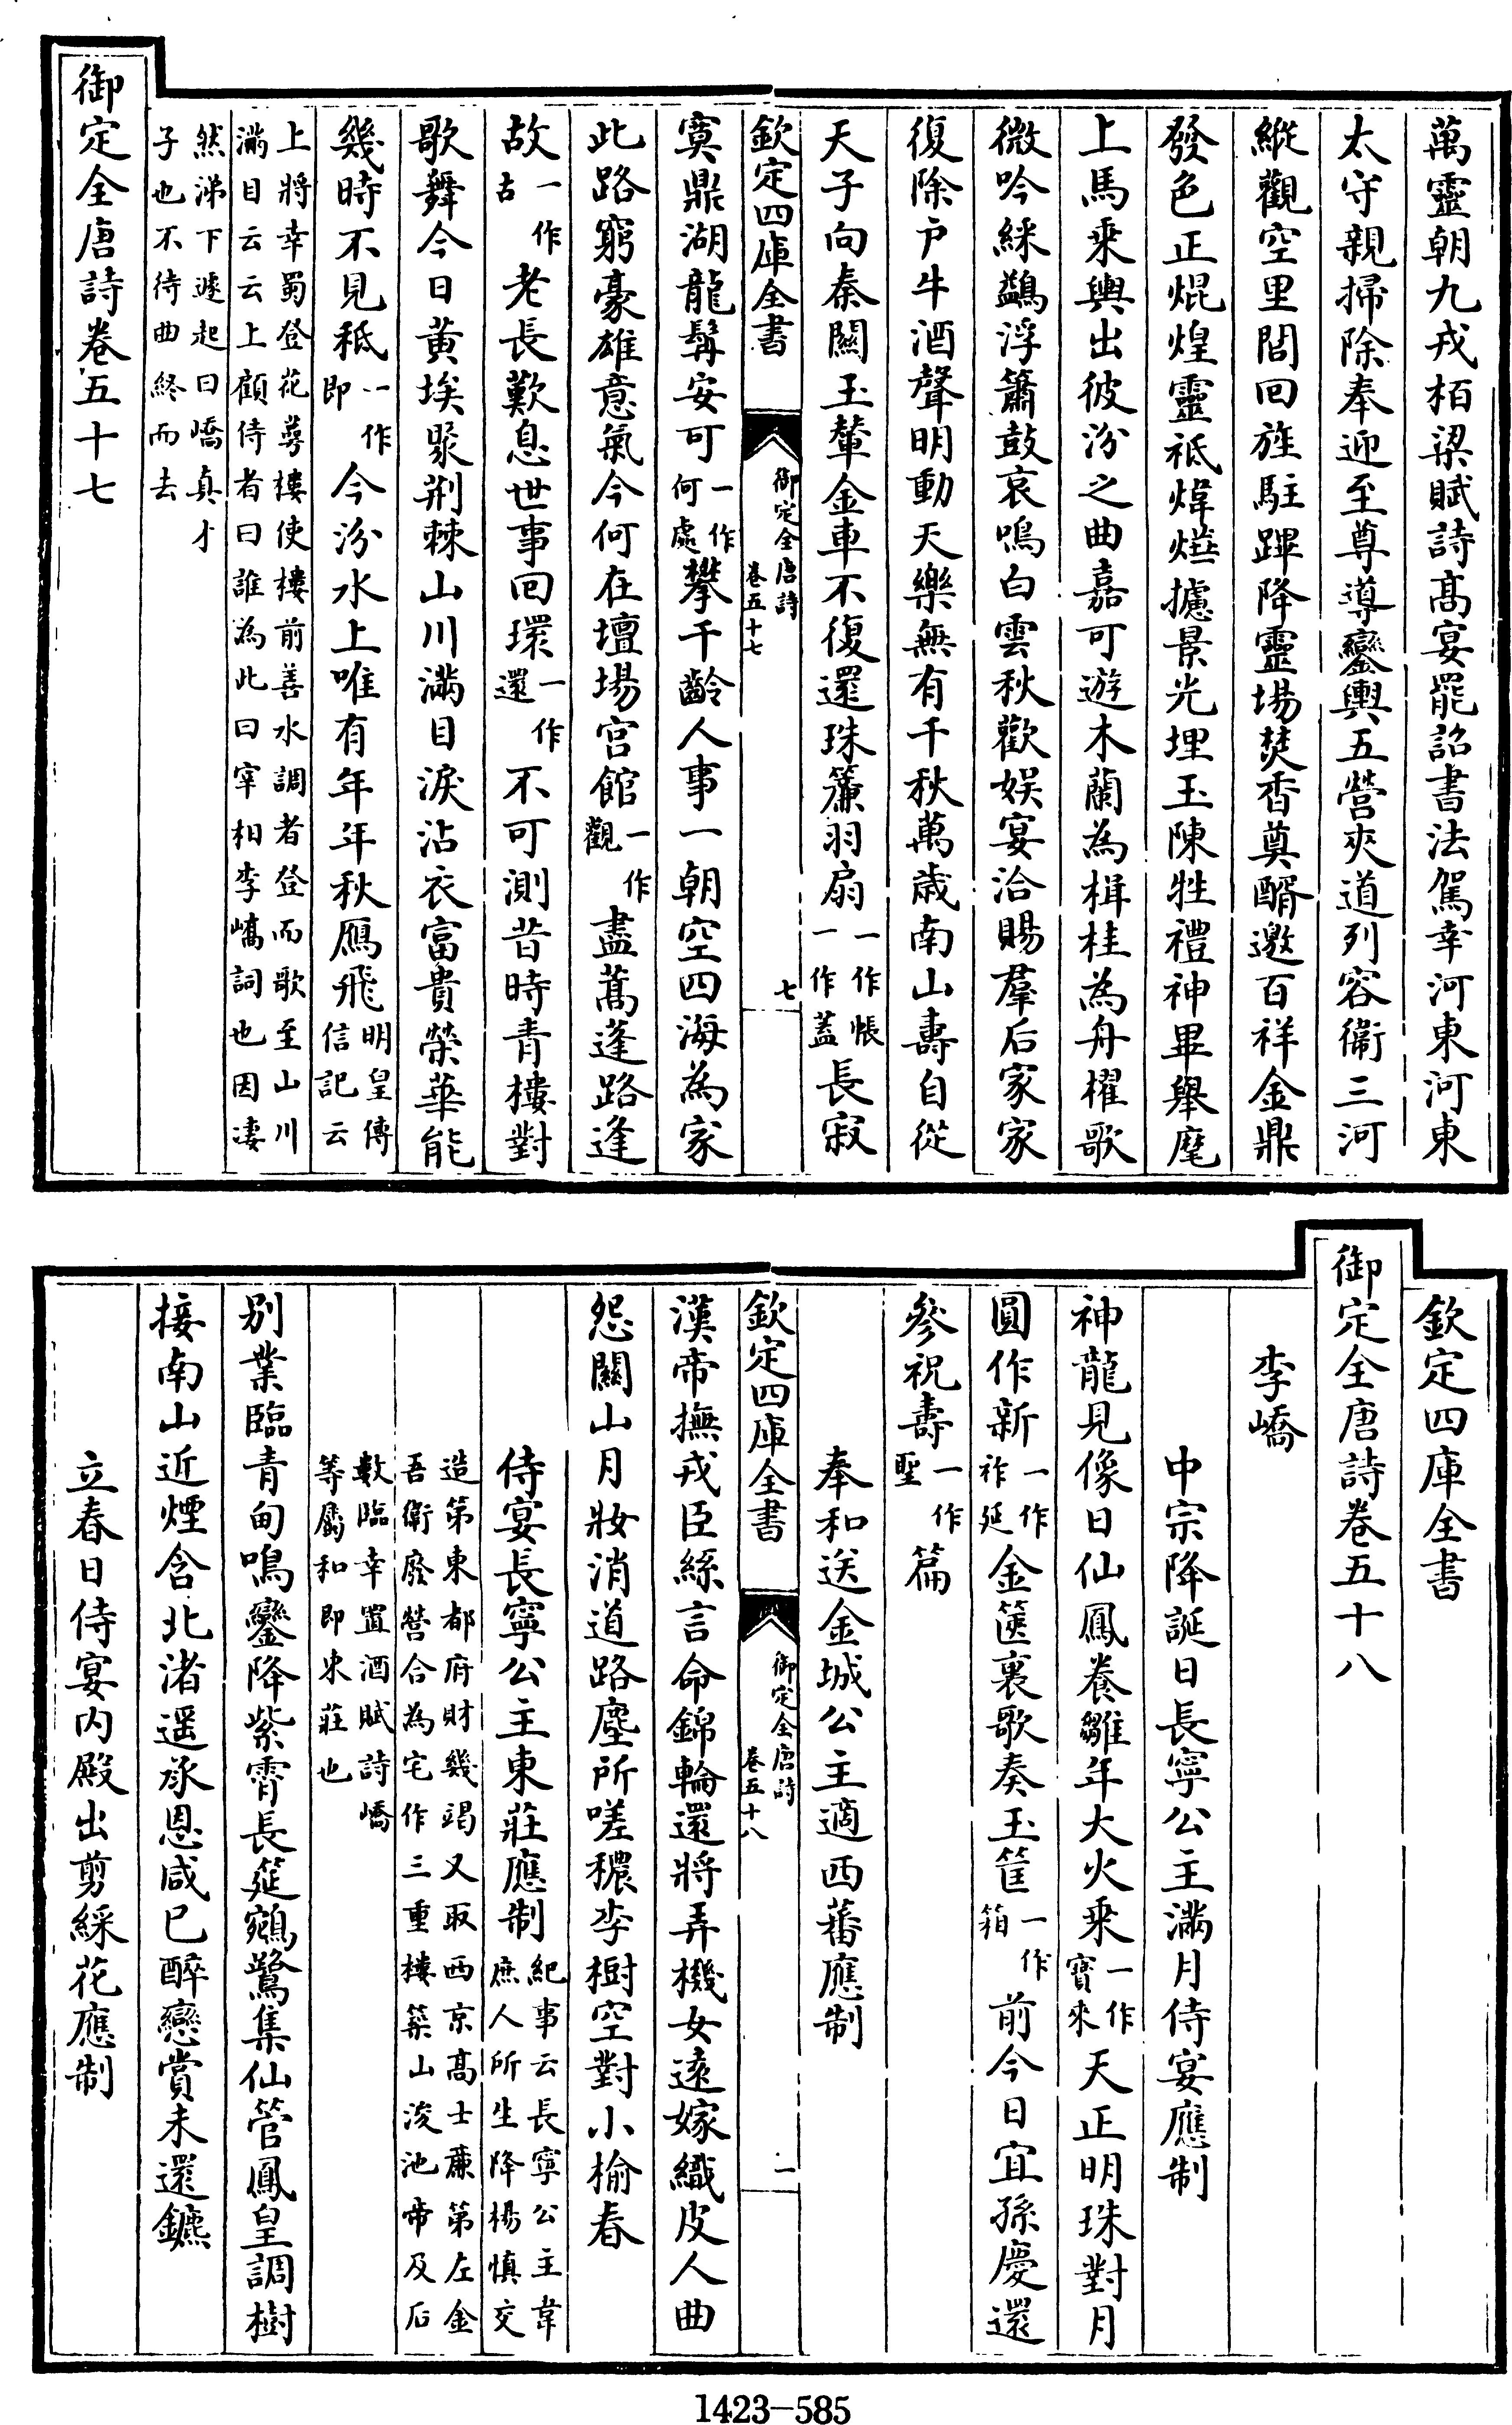 萬靈朝九戎栢梁賦詩髙宴罷詔書法駕幸河東河東
太守親掃除奉迎至尊導鑾輿五營夾道列容衞三河
縱觀空里閭回旌駐蹕降靈場焚香奠醑邀百祥金鼎
發色正焜煌靈祇煒爗攄景光埋玉陳牲禮神畢舉麾
上馬乘輿出彼汾之曲嘉可遊木蘭為楫桂為舟櫂歌
微吟綵鷁浮簫鼓哀鳴白雲秋歡娛宴洽賜羣后家家
復除户牛酒聲明動天樂無有千秋萬歲南山壽自從
天子向秦關玉輦金車不復還珠簾羽扇一作帳一作蓋長寂
欽定四庫全書 御定全唐詩卷五十七 七
寞鼎湖龍髯安可一作何處攀千齡人事一朝空四海為家
此路窮豪雄意氣今何在壇場宮館一作觀盡蒿蓬路逢
故一作古老長歎息世事回環一作還不可測昔時青樓對
歌舞今日黄埃聚荆棘山川滿目淚沾衣富貴榮華能
幾時不見秪一作即今汾水上唯有年年秋鴈飛明皇傳信記云
上將幸蜀登花萼樓使樓前善水調者登而歌至山川
滿目云云上顧侍者曰誰為此曰宰相李嶠詞也因凄
然涕下遽起曰嶠真才
子也不待曲終而去
御定全唐詩卷五十七
欽定四庫全書
御定全唐詩卷五十八
李嶠
中宗降誕日長寧公主滿月侍宴應制
神龍見像日仙鳳養雛年大火乘一作寳來天正明珠對月
圓作新一作祚延金篋裏歌奏玉筐一作箱前今日宜孫慶還
參祝壽一作聖篇
奉和送金城公主適西蕃應制
欽定四庫全書 御定全唐詩卷五十八 一
漢帝撫戎臣絲言命錦輪還將弄機女遠嫁織皮人曲
怨關山月妝消道路塵所嗟穠李樹空對小榆春
侍宴長寧公主東莊應制紀事云長寧公主韋庶人所生降楊慎交
造第東都府財幾竭又取西京髙士亷第左金
吾衛廢營合為宅作三重樓築山浚池帝及后
數臨幸置酒賦詩嶠
等屬和即東莊也
别業臨青甸鳴鑾降紫霄長筵鵷鷺集仙管鳳皇調樹
接南山近煙含北渚遥承恩咸已醉戀賞未還鑣
立春日侍宴内殿出剪綵花應制
1423—585